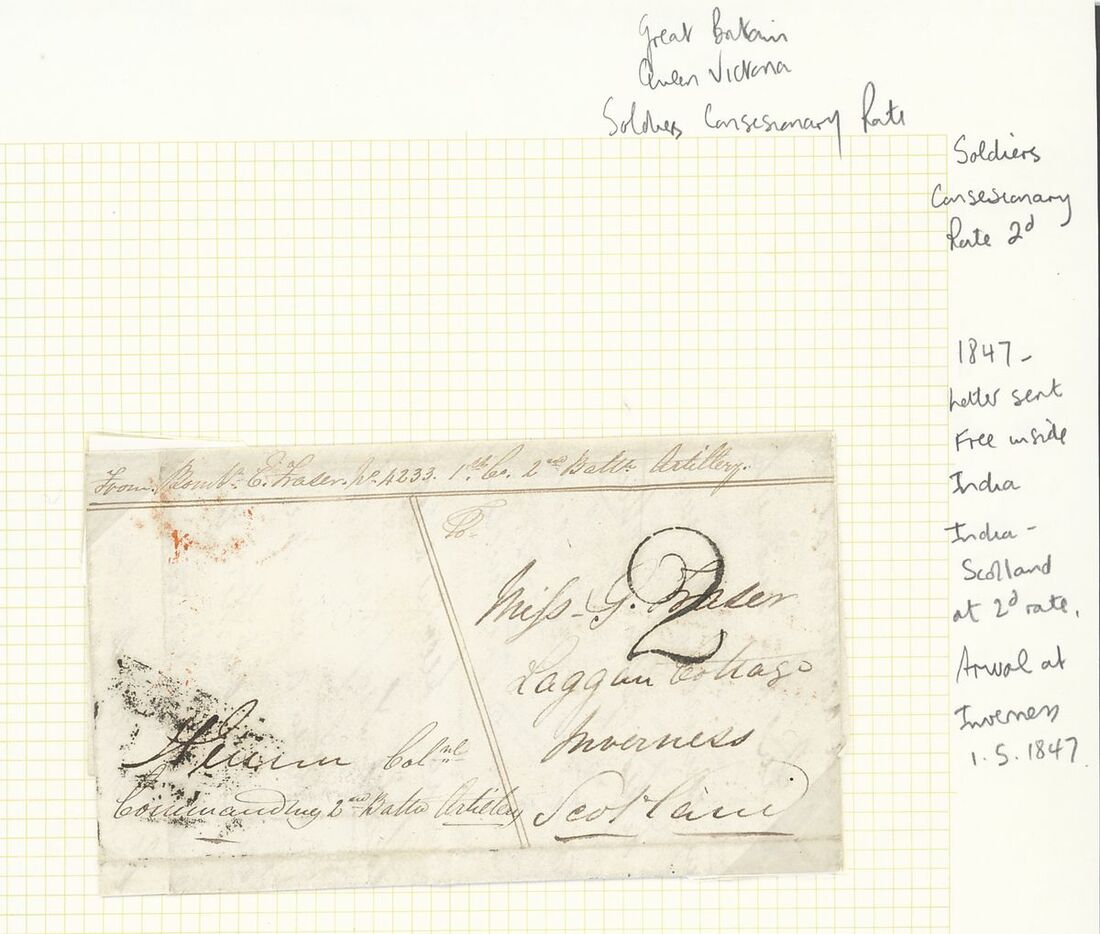 Great Britain
Queen Victoria
Soldiers Consesionary Rate
Soldiers
Consesionary
Rate 2d
1847 -
Letter sent
Free inside
India
India -
Scotland
at 2d rate.
Arrival at
Inverness
1.5.1847
From. Bombr. E. Fraser. No. 4233. 1st Co. 2nd Battn Artillery.
To.
2
Miss G. Fraser
Laggan Cottage
Inverness
Scotland
Colnl
Commanding 2nd Battn Artillery